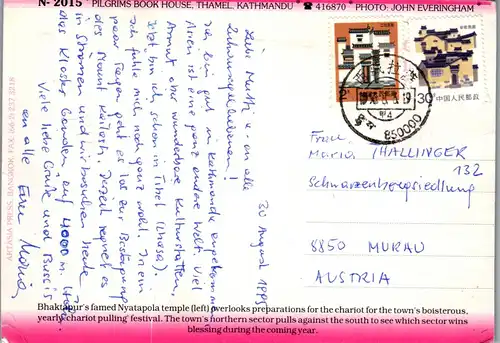 N- 2015 * PILGRIMS BOOK HOUSE, THAMEL, KATHMANDU ☎ 416870 * PHOTO: JOHN EVERINGHAM
30 August 1995
Liebe Mutti u. an alle
bin gut in Kathmandu angekommen
Asien ist eine ganz andere Welt. Viel
Armut aber wunderbare Kulturstätten.
Jetzt bin ich schon in Tibet (Lhasa).
Ich fühle mich noch ganz wohl. In ein
paar Tagen geht es los zur Besteigung
des Mount Kailash. Derzeit regnet es
in Strömen und wir besuchen heute
das Kloster Ganden, auf 4000 m.
Viele liebe Grüße und Bussis
an alle Eure Maria
2分
中国人民邮政
30分
中国人民邮政
850000
Frau
Maria THALLINGER
Schwarzenbergsiedlung 132
8850 MURAU
AUSTRIA
Bhaktapur's famed Nyatapola temple (left) overlooks preparations for the chariot for the town's boisterous,
yearly 'chariot pulling' festival. The town's northern sector pulls against the south to see which sector wins
blessing during the coming year.